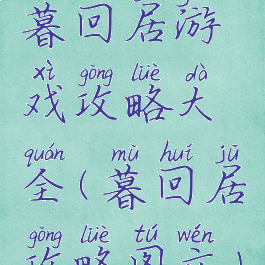 暮回居游
xì gōng lüè dà
戏攻略大
quán mù huí jū
全(暮回居
gōng lüè tú wén
攻略图文)